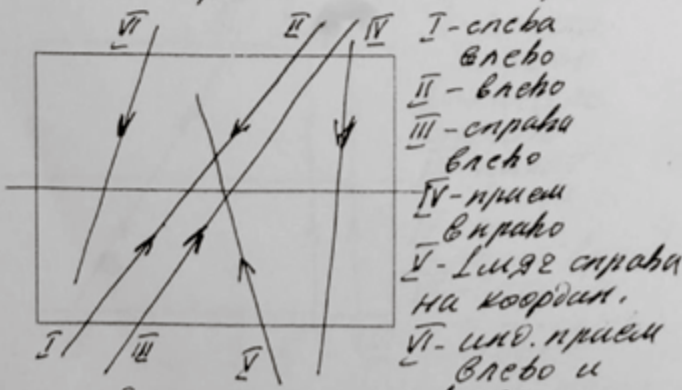 VI
II
IV
I - слева
влево
II - влево
III - справа
влево
IV - прием
вправо
V - 1 мяч справа
на коордик.
VI - инд. прием
влево и
I
III
V